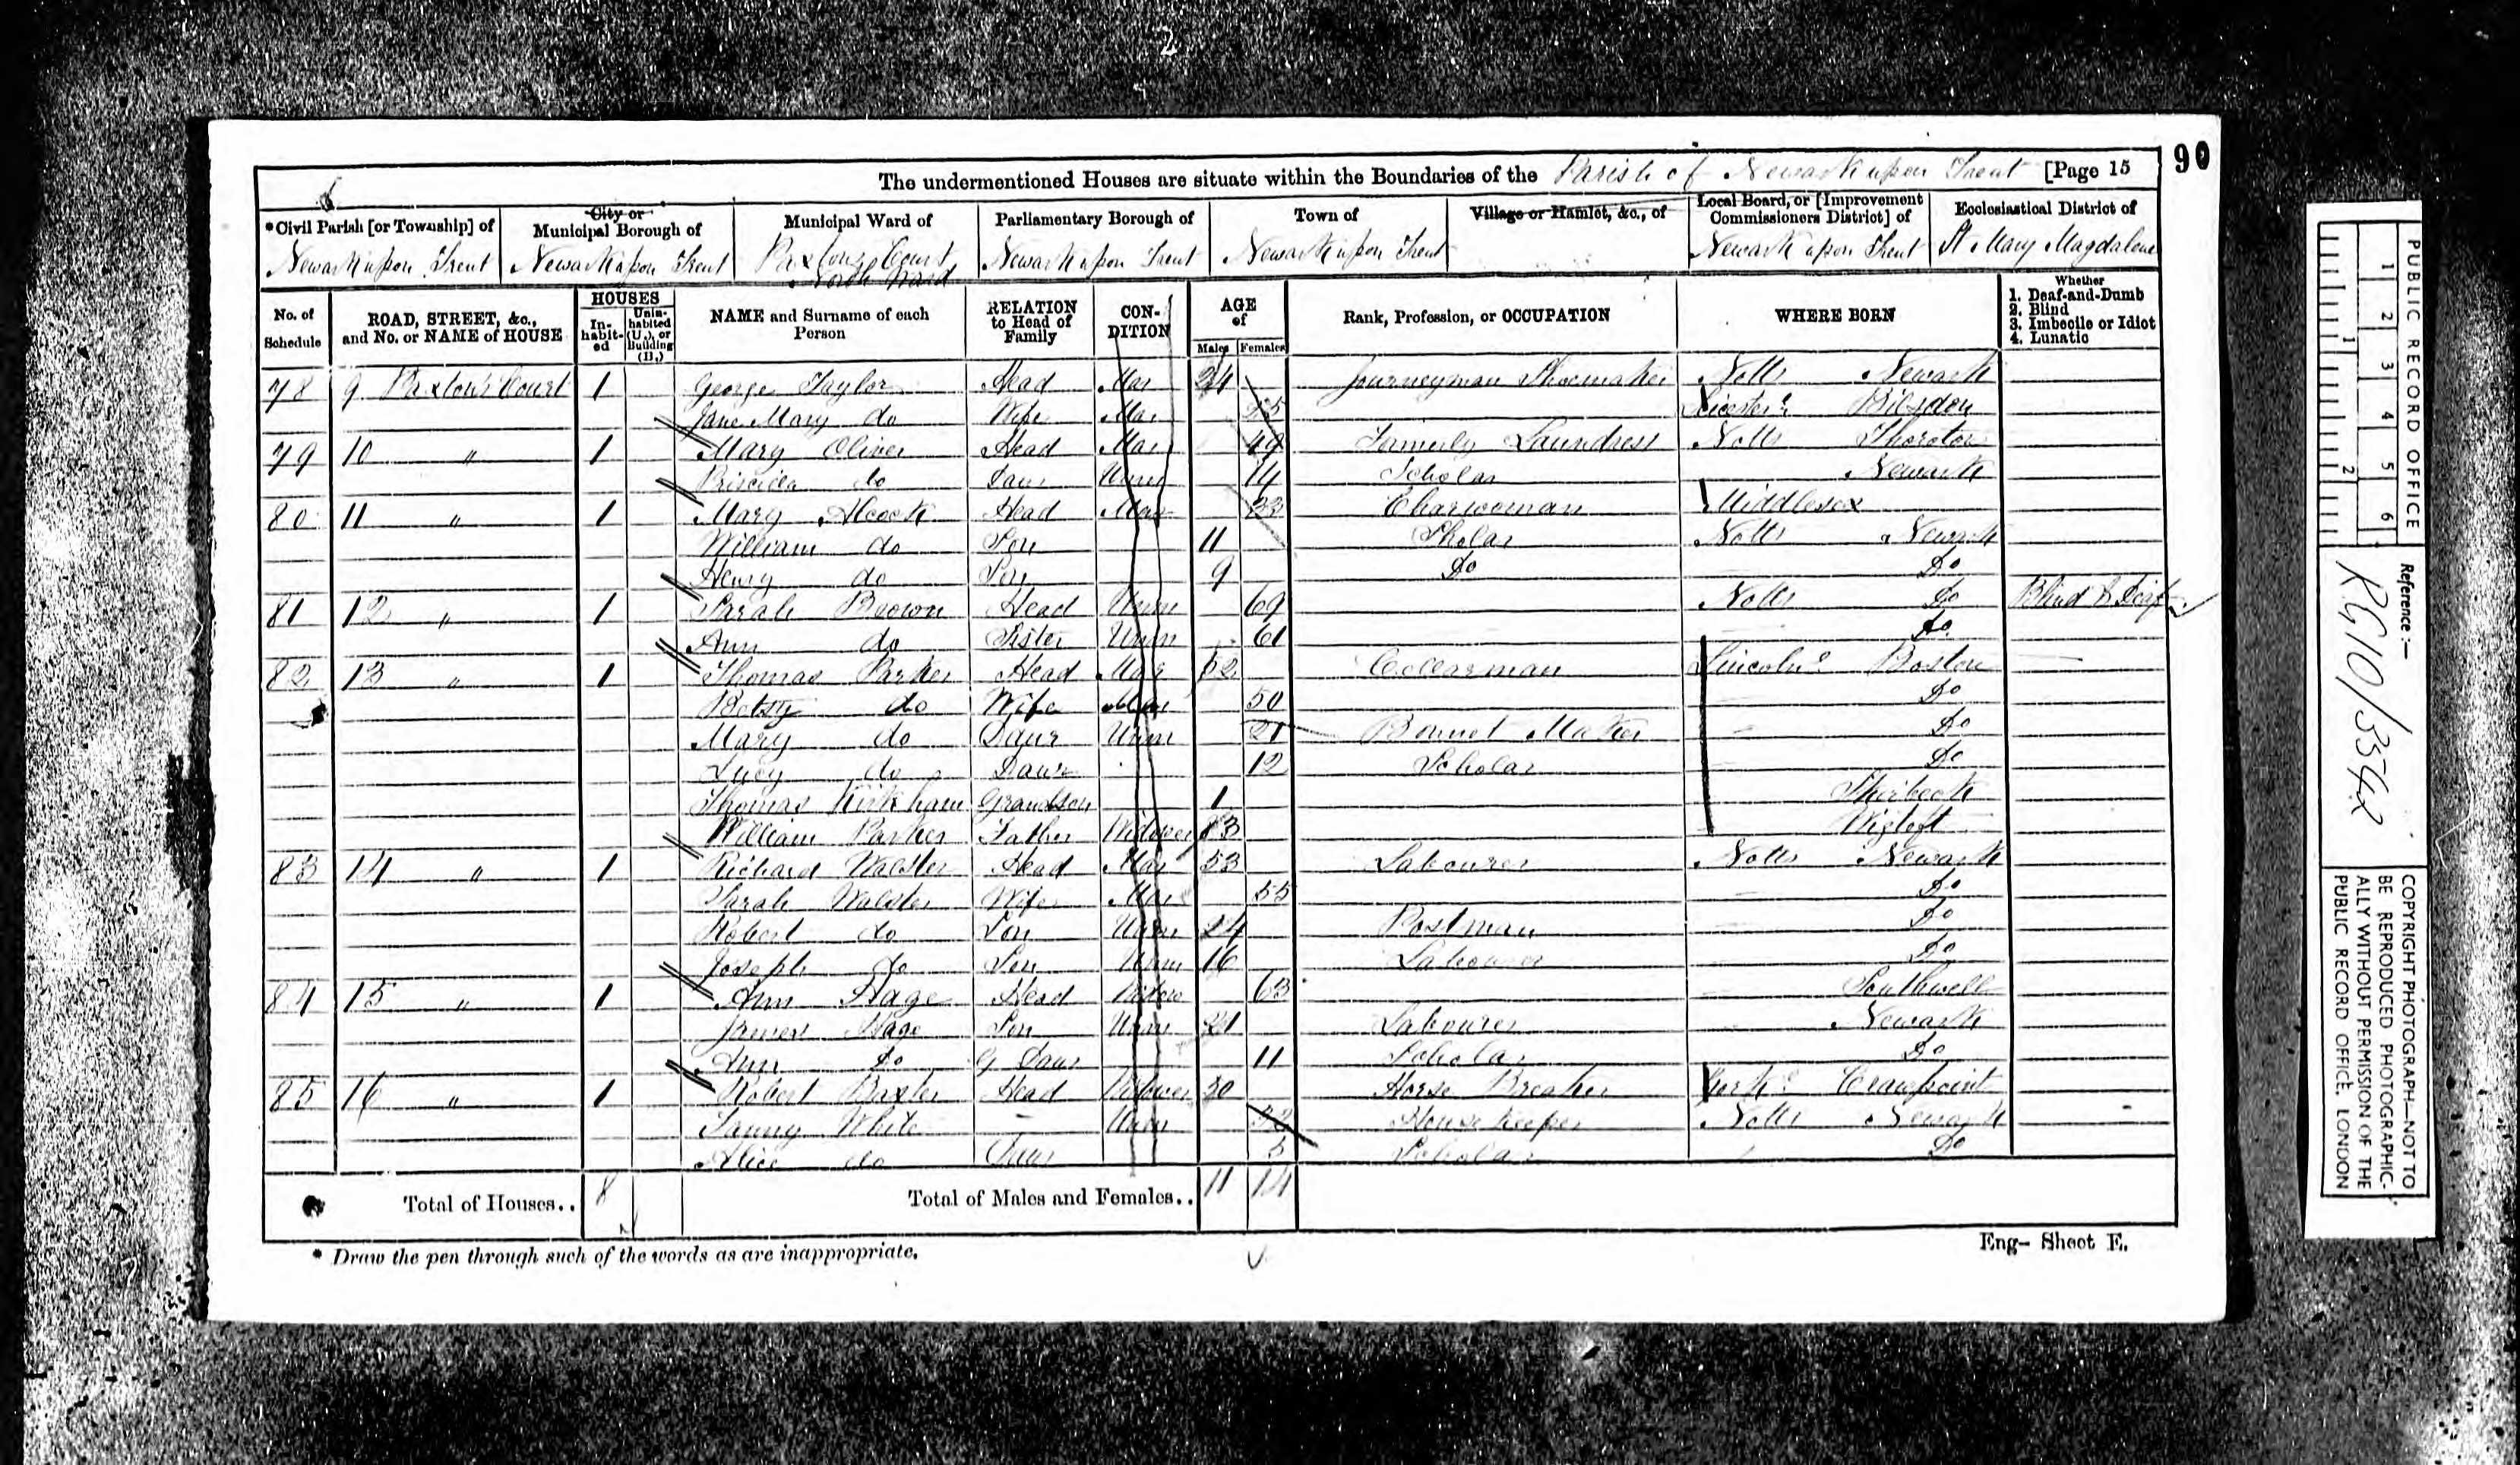 2
The undermentioned Houses are situate within the Boundaries of the Parish of Newark upon Trent [Page 15
90
*Civil Parish [or Township] of
City or Municipal Borough of
Municipal Ward of
Parliamentary Borough of
Town of
Village or Hamlet, &c., of
Local Board, or [Improvement Commissioners District] of
Ecclesiastical District of
Newark upon Trent Newark upon Trent Paxtons Court North Ward Newark upon Trent Newark upon Trent Newark upon Trent St Mary Magdalene
No. of Schedule
ROAD, STREET, &c., and No. or NAME of HOUSE
HOUSES
In-habit-ed
Unin-habited (U.), or Building (B.)
NAME and Surname of each Person
RELATION to Head of Family
CON-DITION
AGE of
Males Females
Rank, Profession, or OCCUPATION
WHERE BORN
Whether
1. Deaf-and-Dumb
2. Blind
3. Imbecile or Idiot
4. Lunatic
78 9 Paxtons Court 1 George Taylor Head Mar 24 Journeyman Shoemaker Notts Newark
Jane Mary do Wife Mar 25 Leicester Bilsdon
79 10 " 1 Mary Oliver Head Mar 49 Formerly Laundress Notts Thoroton
Priscilla do Daur Unm 14 Scholar Newark
80 11 " 1 Mary Alcock Head Mar 33 Charwoman Middlesex
William do Son 11 Sholar Notts Newark
Henry do Son 9 Do Do
81 12 " 1 Sarah Brown Head Unm 69 Notts Do Blind & Deaf
Ann do Sister Unm 61 Do
82 13 " 1 Thomas Parker Head Mar 52 Cellarman Lincolns Boston
Betsy do Wife Mar 50 Do
Mary do Daur Unm 21 Bonnet Maker Do
Lucy do Daur 12 Scholar Do
Thomas Kirkham Grandson 1 Skirbeck
William Parker Father Widower 83 Wigtoft
83 14 " 1 Richard Walster Head Mar 53 Labourer Notts Newark
Sarah Walster Wife Mar 55 Do
Robert do Son Unm 24 Postman Do
Joseph do Son Unm 16 Labourer Do
84 15 " 1 Ann Hage Head Widow 63 Southwell
James Hage Son Unm 21 Labourer Newark
Ann Do G Daur 11 Scholar Do
85 16 " 1 Robert Baxter Head Widower 30 Horse Breaker Yorks
Fanny White Unm 32 House Keeper Notts Newark
Alice do Daur 5 Scholar Do
Total of Houses.. 8 Total of Males and Females.. 11 14
* Draw the pen through such of the words as are inappropriate.
Eng- Sheet E.
PUBLIC RECORD OFFICE
1 2 3 4 5 6
1 2
Reference:—
RG10/3542
COPYRIGHT PHOTOGRAPH—NOT TO
BE REPRODUCED PHOTOGRAPHIC-
ALLY WITHOUT PERMISSION OF THE
PUBLIC RECORD OFFICE, LONDON